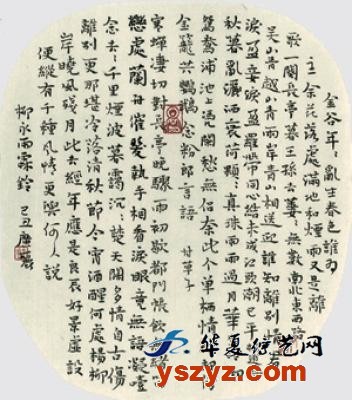 金谷年々亂生春色誰為
主余花落處滿地和煙雨又是離
歌一闋長亭暮王孫去萋々無數南北東西路
吳山青越山青兩岸青山相送迎誰知離別情君
淚盈妾淚盈羅帶同心結未成江頭潮已平
秋暮亂灑衰荷顆々真珠雨雨過月華生冷徹
鴛鴦浦池上憑闌愁無侶奈此個單棲情緒卻傍
金籠共鸚鵡念粉郎言語 甘草子
寒蟬淒切對長亭晚驟雨初歇都門帳飲無緒留
戀處蘭舟催發執手相看淚眼竟無語凝噎
念去々千里煙波暮靄沉々楚天闊多情自古傷
離別更那堪冷落清秋節今宵酒醒何處楊柳
岸曉風殘月此去經年應是良辰好景虛設
便縱有千種風情更與何人說
柳永雨霖鈴 己丑唐
华夏综艺网
yszyz.com